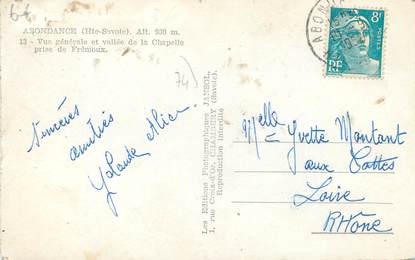 64
ABONDANCE (Hte-Savoie). Alt. 930 m.
13 - Vue générale et vallée de la Chapelle
prise de Frémoux.
74)
Sincères
amitiés
Yolande Alice
Les Editions Photographiques JANSOL,
1, rue Croix-d'Or, CHAMBÉRY (Savoie).
Reproduction Interdite
ABON
8F
POSTES
RF
Melle Yvette Montant
aux Cottes
Loire
RHône